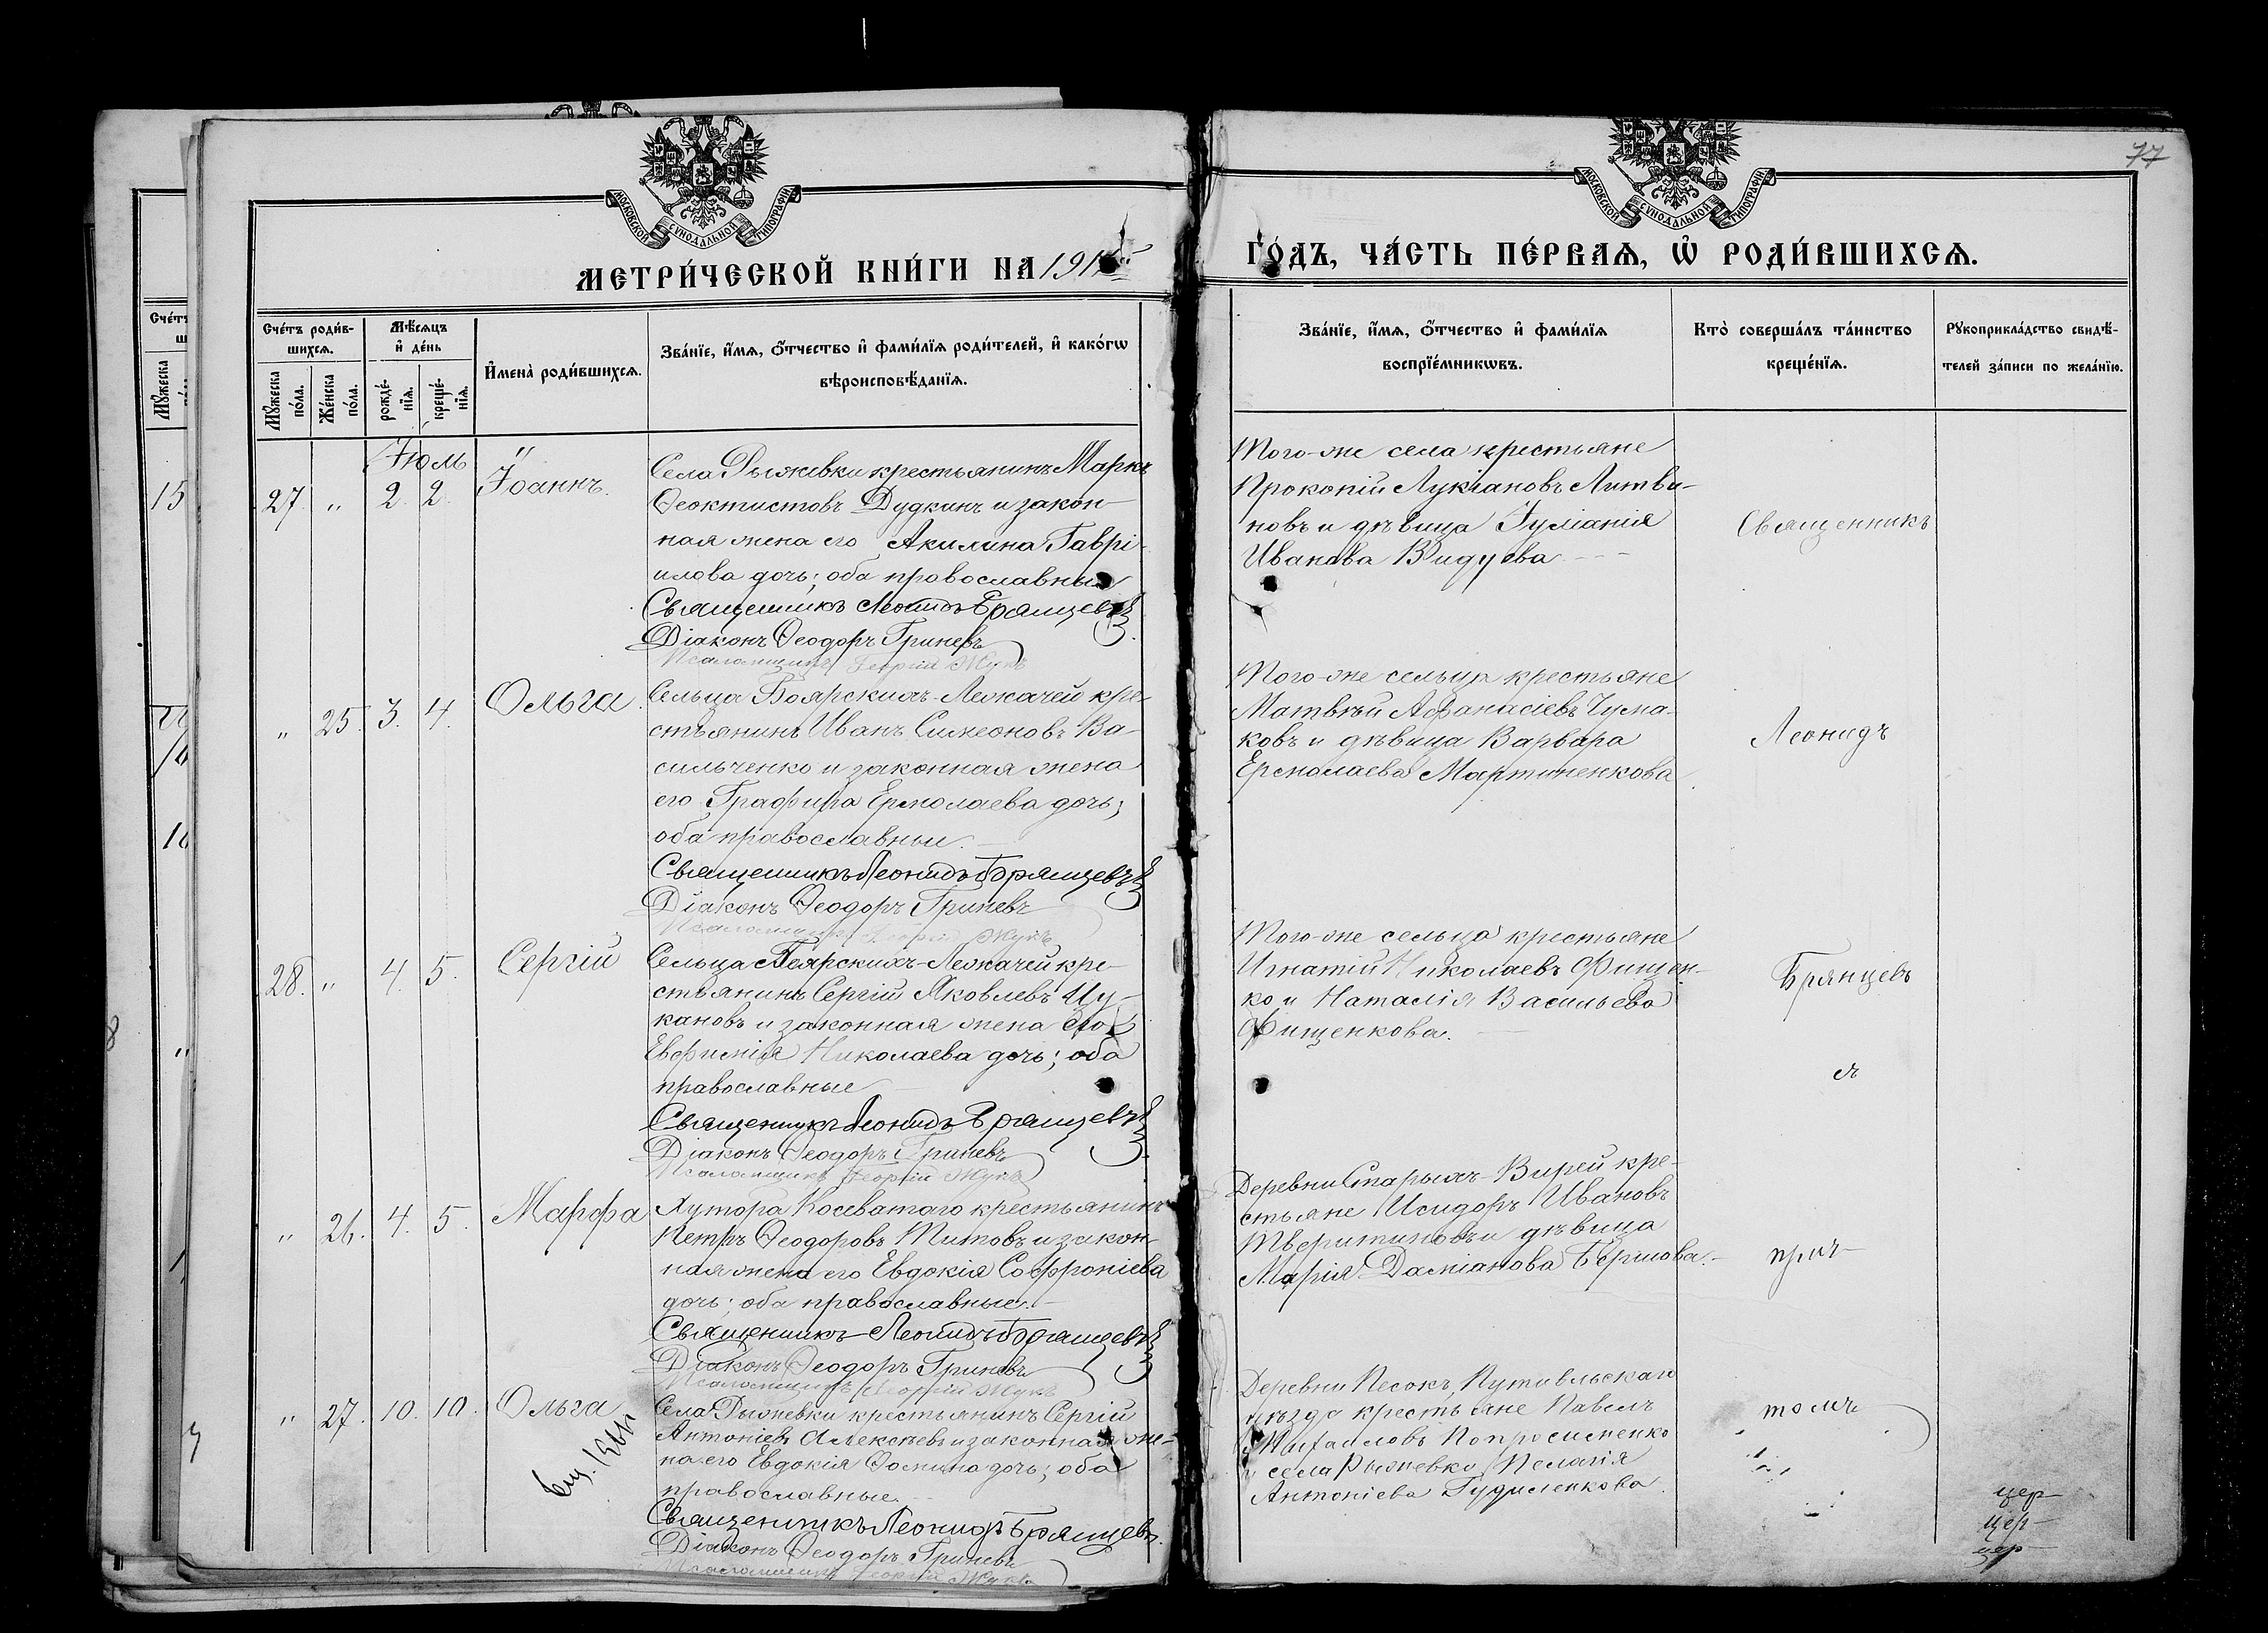 77
МОСКОВСКОЙ СѴНОДАЛЬНОЙ ТИПОГРАФІИ
МОСКОВСКОЙ СѴНОДАЛЬНОЙ ТИПОГРАФІИ
МЕТРИ́ЧЕСКОЙ КНИ́ГИ НА 191
ГО́ДЪ, ЧА́СТЬ ПЕ́РВАѦ, Ѡ҆ РОДИ́ВШИХСѦ.
Сче́тъ роди́в-
шихсѧ.
Мꙋ́жеска
по́ла.
Же́нска
по́ла.
Мѣ́сѧцъ
и҆ де́нь
рожде́-
нїѧ.
креще́-
нїѧ.
И҆мена̀ роди́вшихсѧ.
Зва́нїе, и҆́мѧ, ѻ҆́тчество и҆ фами́лїѧ роди́телей, и҆ како́гѡ
вѣроисповѣ́данїѧ.
Зва́нїе, и҆́мѧ, ѻ҆́тчество и҆ фами́лїѧ
воспрїе́мникѡвъ.
Кто̀ соверша́лъ та́инство
креще́нїѧ.
Рꙋкоприкла́дство свидѣ́-
телей за́писи по жела́нїю.
Іюль
27. " 2. 2. Іоаннъ.
Села Рыжевки крестьянинъ Маркъ
Ѳеоктистовъ Дудкинъ и закон-
ная жена его Акилина Гаврі-
илова дочь; оба православные
Священникъ Леонидъ Брянцевъ
Діаконъ Ѳеодоръ Гриневъ
Псаломщикъ Георгій Жукъ
Того-же села крестьяне
Прокопій Лукіановъ Литви-
новъ и дѣвица Іуліанія
Иванова Видуева
Священникъ
" 25. 3. 4. Ольга.
Сельца Боярскихъ-Лежачей кре-
стьянинъ Иванъ Симеоновъ Ва-
сильченко и законная жена
его Графира Ермолаева дочь;
оба православныи.
Священникъ Леонидъ Брянцевъ
Діаконъ Ѳеодоръ Гриневъ
Псаломщикъ Георгій Жукъ
Того-же сельца крестьяне
Матвѣй Аѳанасіевъ Чума-
ковъ и дѣвица Варвара
Ермолаева Мартиненкова
Леонидъ
28. " 4. 5. Сергій
Сельца Боярскихъ-Лежачей кре-
стьянинъ Сергій Яковлевъ Цу-
кановъ и законная жена его
Евфимія Николаева дочь; оба
православные
Священникъ Леонидъ Брянцевъ
Діаконъ Ѳеодоръ Гриневъ
Псаломщикъ Георгій Жукъ
Того-же сельца крестьяне
Игнатій Николаевъ Фищен-
ко и Наталія Васильева
Фищенкова.
Брянцевъ
съ
" 26. 4. 5. Марфа
Хутора Косеватаго крестьянинъ
Петръ Ѳеодоровъ Титовъ и закон-
ная жена его Евдокія Софроніева
дочь; оба православные.
Священникъ Леонидъ Брянцевъ
Діаконъ Ѳеодоръ Гриневъ
Псаломщикъ Георгій Жукъ
Деревни Старыхъ-Вирей кре-
стьяне Исидоръ Ивановъ
Тверитиновъ и дѣвица
Марія Даміанова
прич-
" 27. 10. 10. Ольга
Села Рыжевки крестьянинъ Сергій
Антоніевъ Алексѣевъ и законная же-
на его Евдокія Ѳомина дочь; оба
православные.
Священникъ Леонидъ Брянцевъ.
Діаконъ Ѳеодоръ Гриневъ
Псаломщикъ Георгій Жукъ
Деревни Песокъ, Путивльскаго
уѣзда крестьяне Павелъ
и села Рыжевки Пелагія
Антоніева Гудиленкова.
томъ